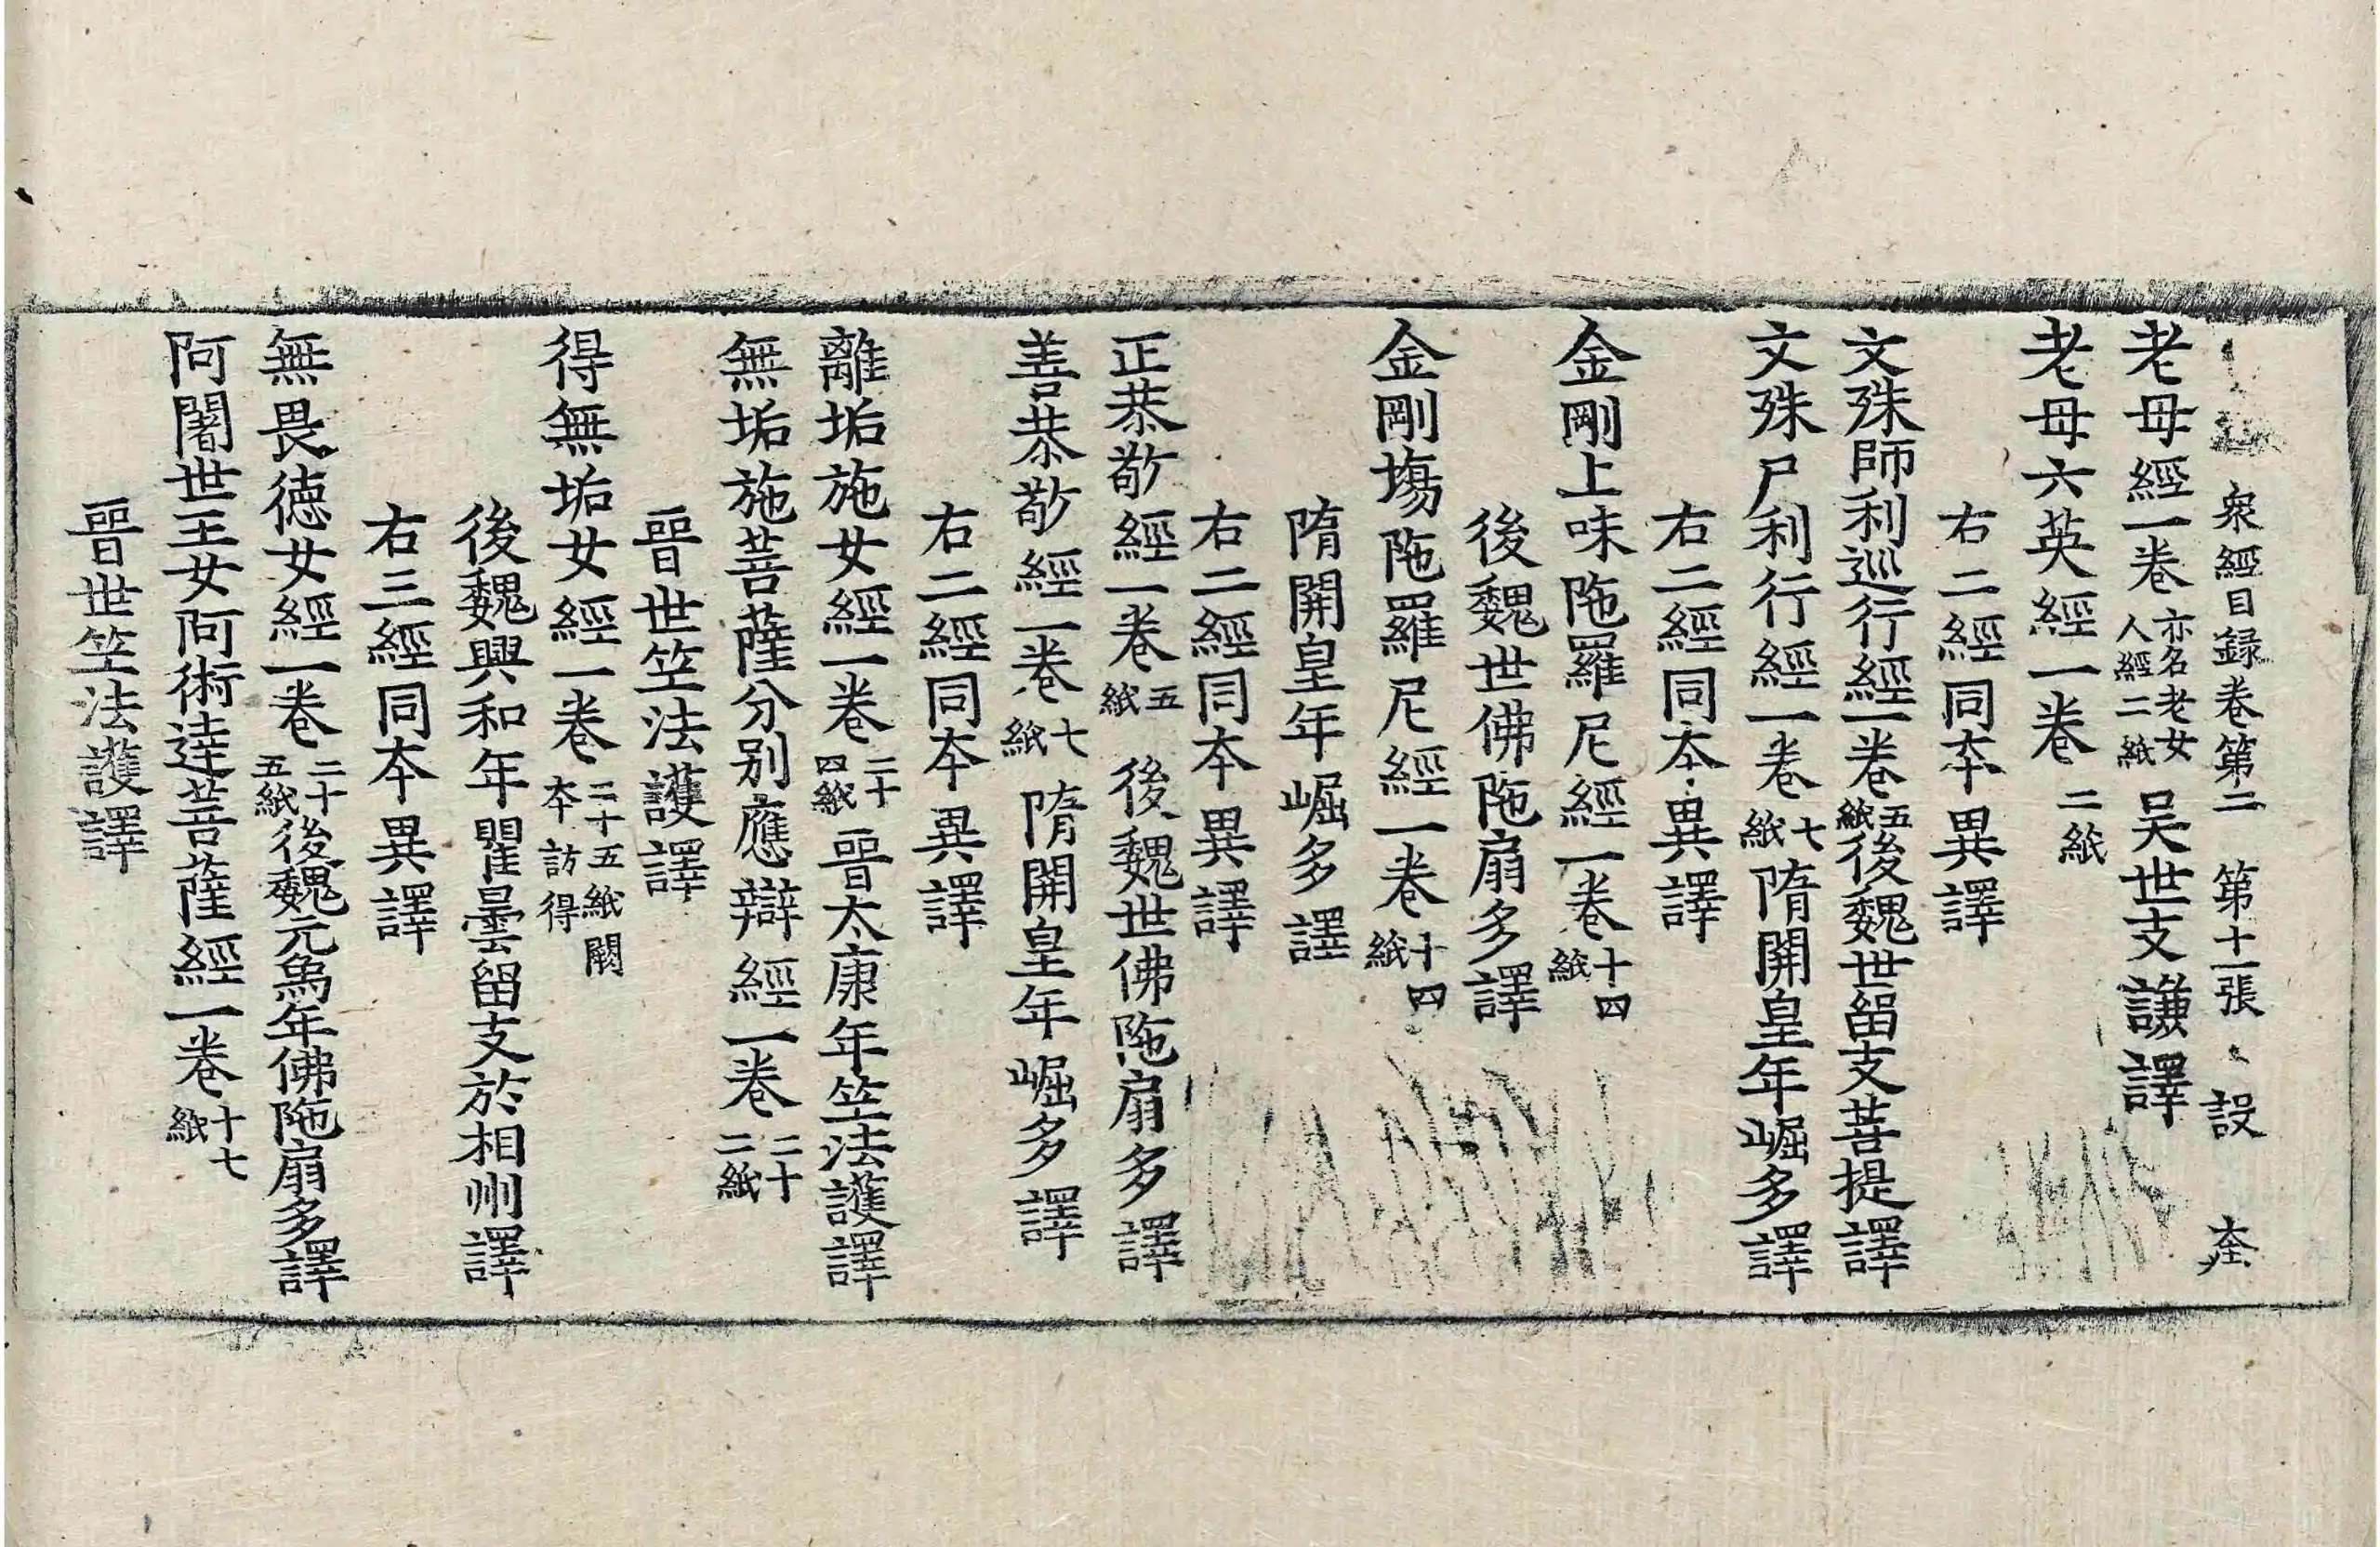 衆經目録卷第二　第十一張　設　𡘋
老母經一卷亦名老女人經二紙吴世支謙譯
老母六英經一卷二紙
右二經同夲異譯
文殊師利巡行經一卷五紙後魏世留支菩提譯
文殊尸利行經一卷七紙隋開皇年崛多譯
右二經同夲異譯
金剛上味陁羅尼經一卷十四紙
後魏世佛陁扇多譯
金剛塲陁羅尼經一卷十四紙
隋開皇年崛多譯
右二經同夲異譯
正恭敬經一卷五紙後魏世佛陁扇多譯
善恭敬經一卷七紙隋開皇年崛多譯
右二經同夲異譯
離垢施女經一卷二十四紙晉太康年竺法護譯
無垢施菩薩分别應辯經一卷二十二紙
晉世竺法護譯
得無垢女經一卷二十五紙闕夲訪得
後魏興和年瞿曇留支於相州譯
右三經同夲異譯
無畏德女經一卷二十五紙後魏元象年佛陁扇多譯
阿闍世王女阿術達菩薩經一卷十七紙
晉世竺法護譯